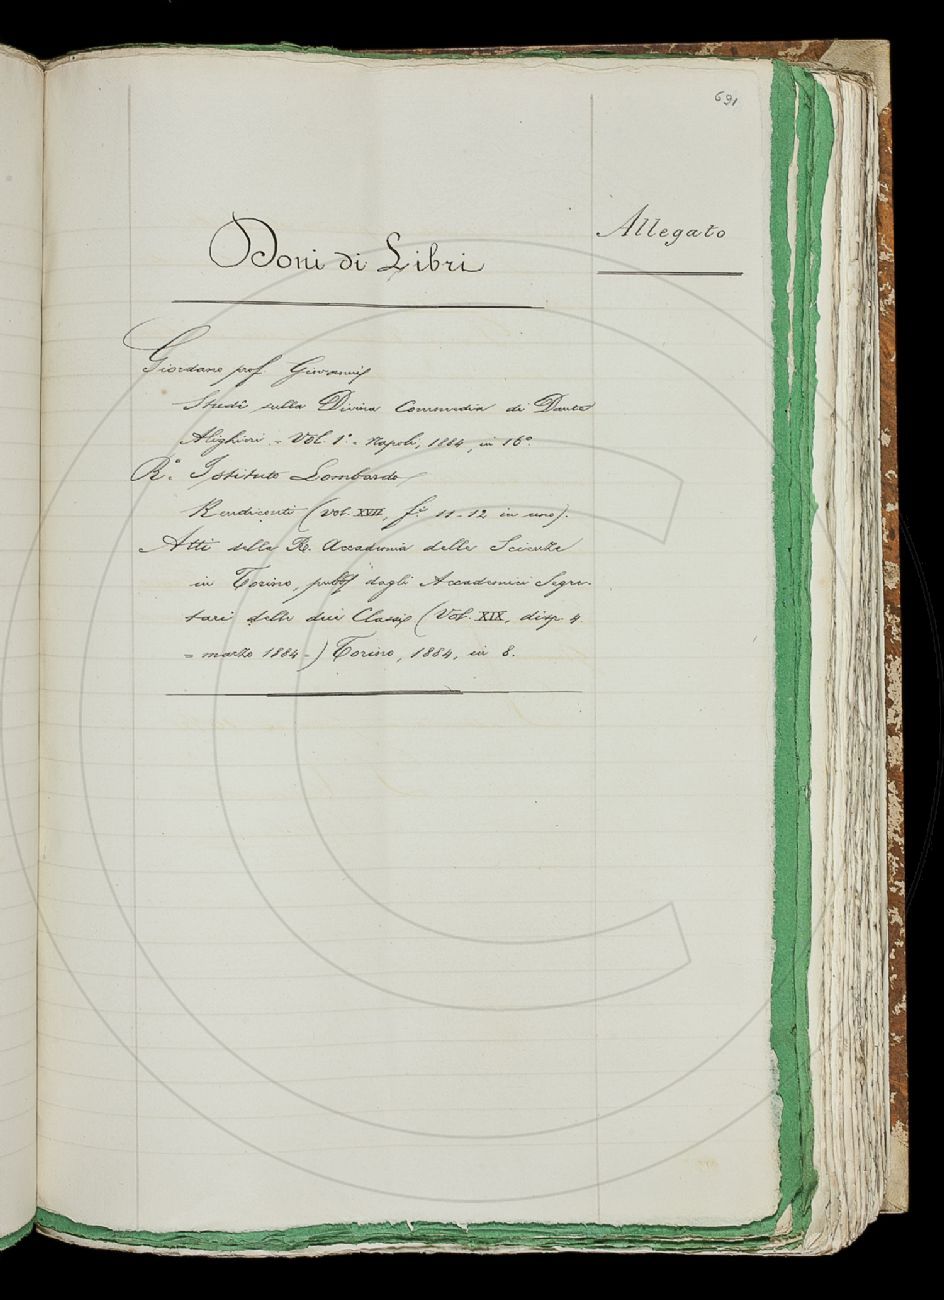 691
Allegato
Doni di Libri
Giordano prof Giovanni
Studî sulla Divina Commedia di Dante
Alighieri - Vol. 1° - Napoli, 1884, in 16°.
R.° Istituto Lombardo
Rendiconti (vol. XVII, f.i 11-12 in uno).
Atti della R. Accademia delle Scienze
in Torino, pubbl dagli Accademici Segre-
tari delle due Classi (Vol. XIX, disp 4
- marzo 1884 -) Torino, 1884, in 8.